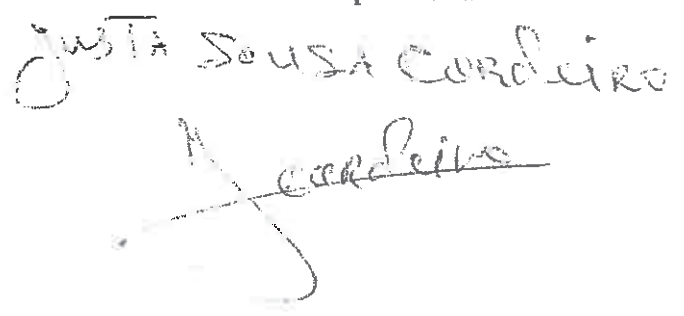 JUSTA SOUSA CORDEIRO
Cordeiro